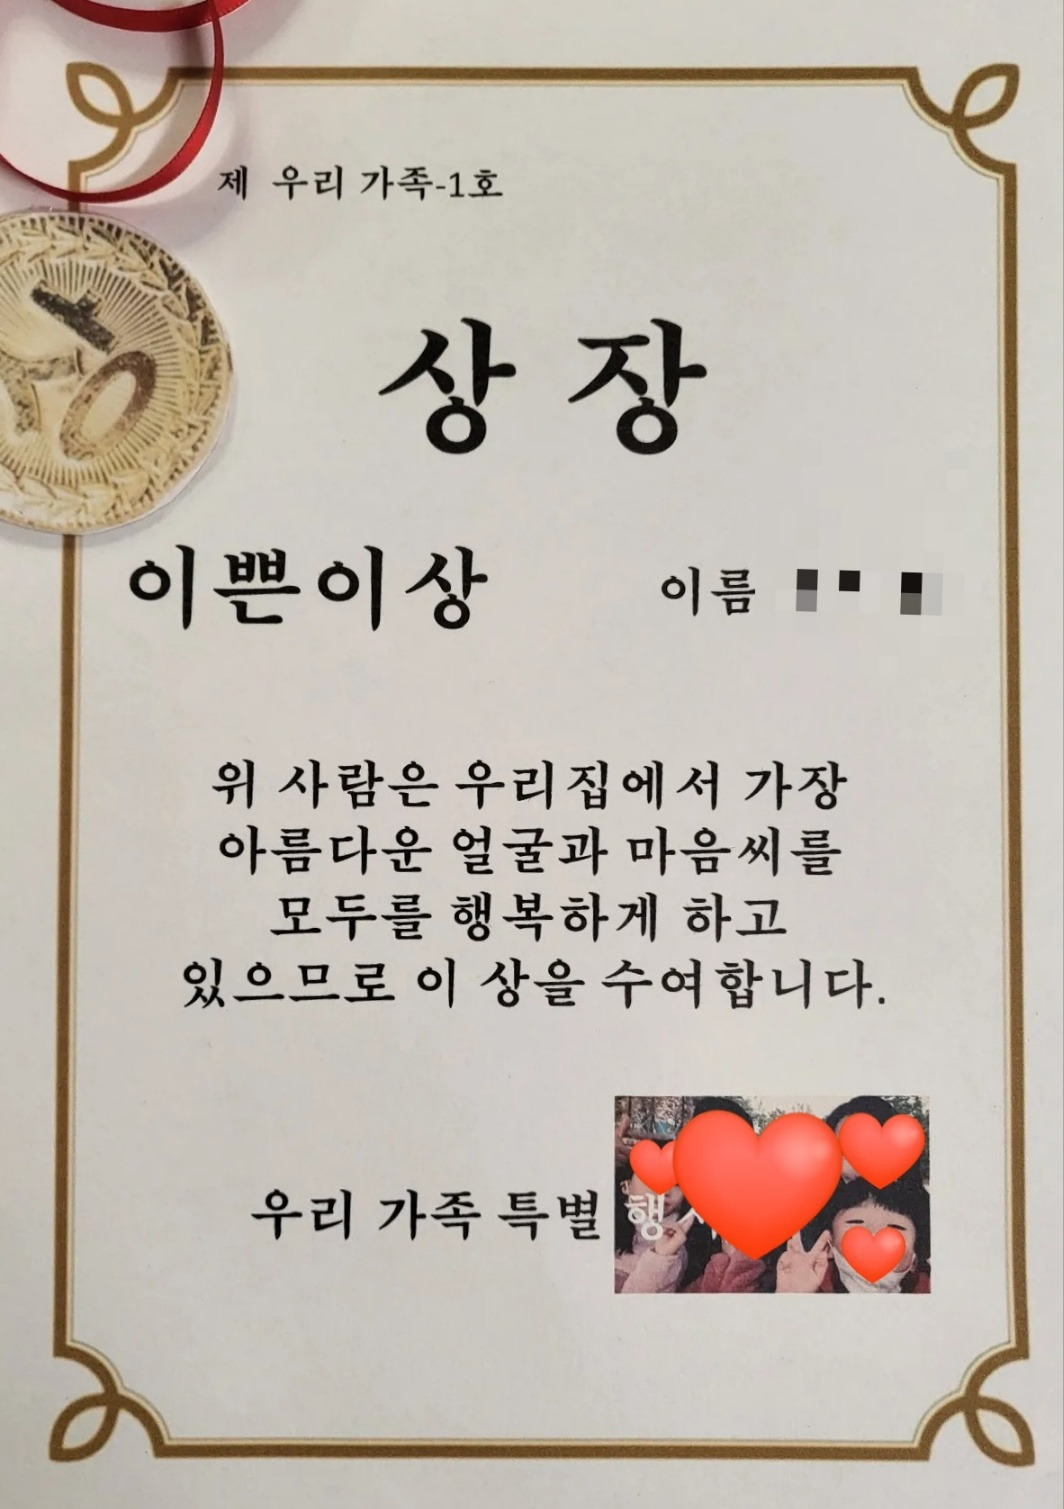 제 우리 가족-1호
상 장
이쁜이상 이름
위 사람은 우리집에서 가장
아름다운 얼굴과 마음씨를
모두를 행복하게 하고
있으므로 이 상을 수여합니다.
우리 가족 특별 행